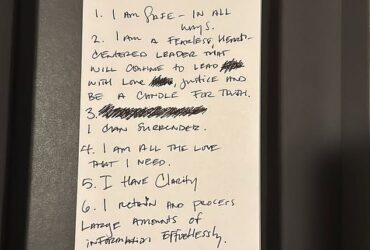 1. I AM SAFE – IN ALL
WAYS.
2. I AM A FEARLESS, HEART-
CENTERED LEADER THAT
WILL CONTINUE TO LEAD
WITH LOVE, JUSTICE AND
BE A CANDLE FOR TRUTH.
3.
I CAN SURRENDER.
4. I AM ALL THE LOVE
THAT I NEED.
5. I HAVE CLARITY
6. I RETAIN AND PROCESS
LARGE AMOUNTS OF
INFORMATION EFFORTLESSLY.